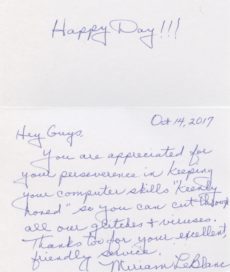 Happy Day!!!
Oct 14, 2017
Hey Guys,
You are appreciated for
your perseverence in keeping
your computer skills "keenly
honed" so you can cut through
all our glitches & viruses.
Thanks too for your excellent,
friendly service.
Miriam LeBlanc